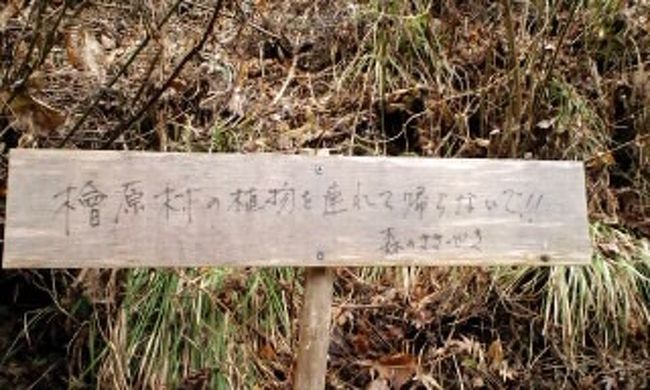 檜原村の植物を連れて帰らないで!!
森のささやき